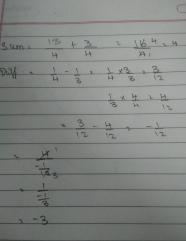 Sum = 13/4 + 3/4 = 16/4 = 4
Diff = 1/4 - 1/3 = 1/4 × 3/3 = 3/12
1/3 × 4/4 = 4/12
= 3/12 - 4/12 = -1/12
=
= 1
= -3